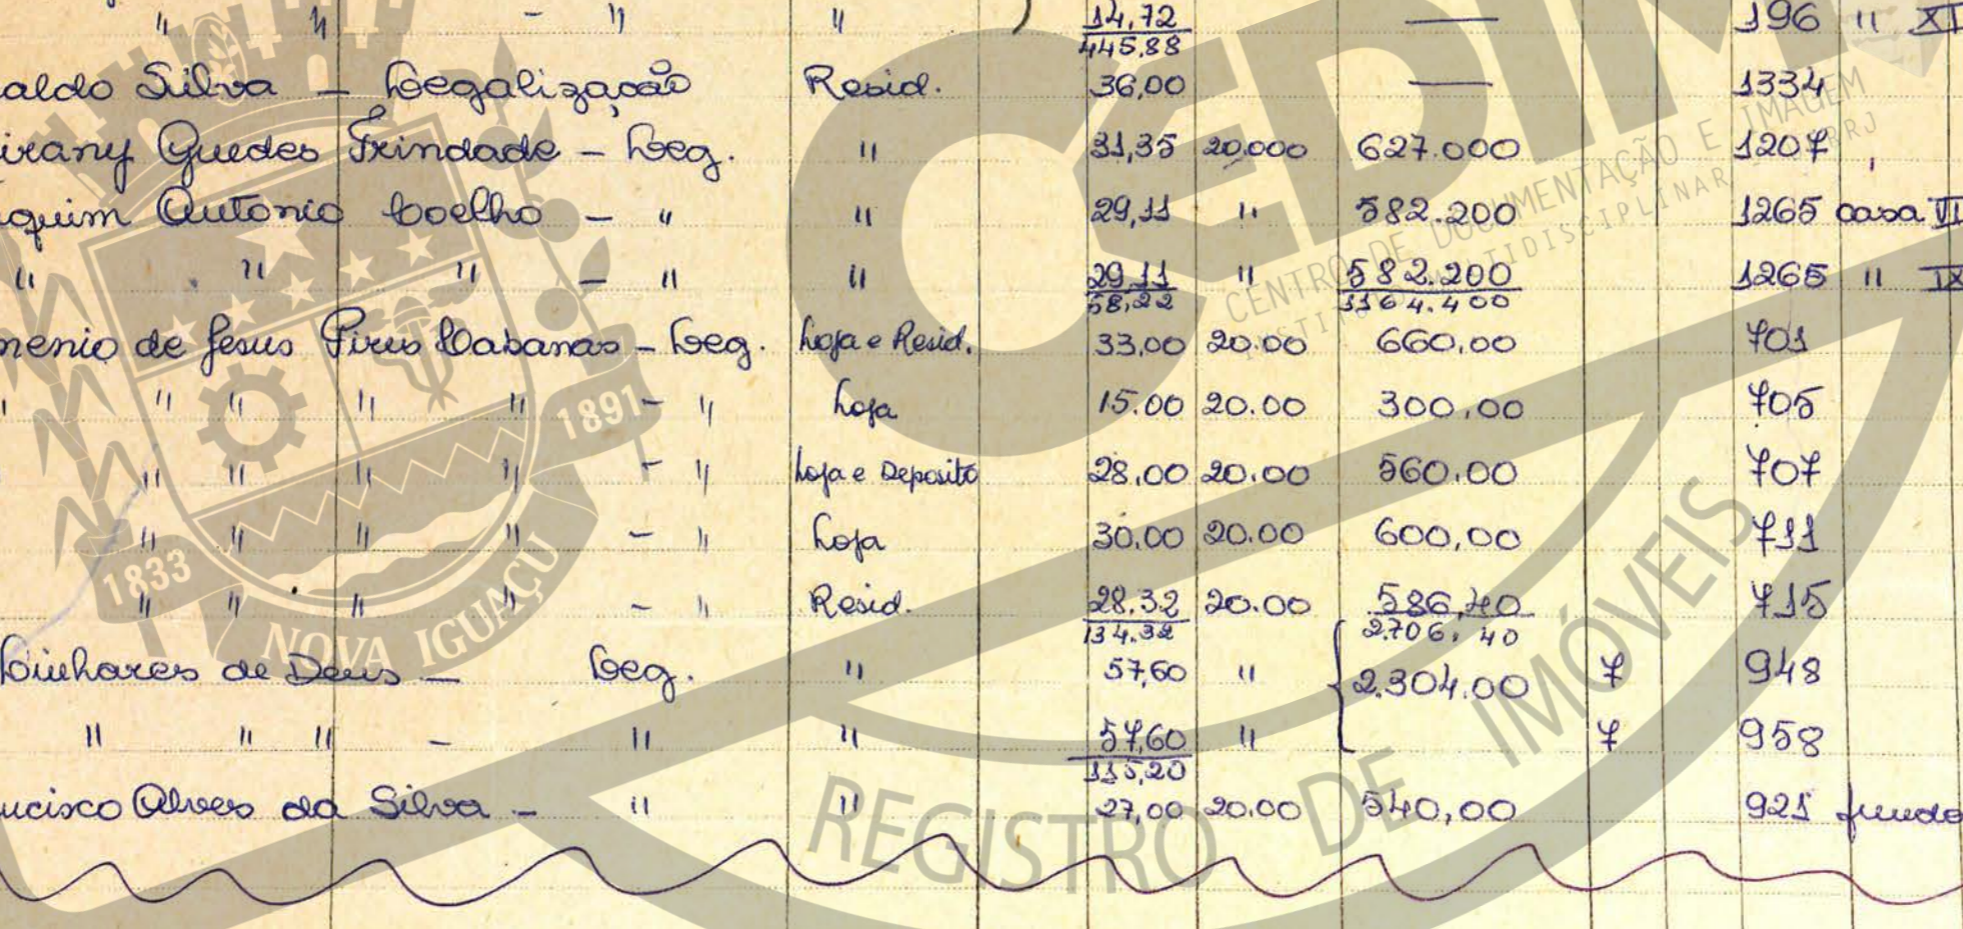 " " - " " ) 14,72 — 196 " XI
445,88
aldo Silva - Legalização Resid. 36,00 — 1334
irany Guedes Trindade - Leg. " 31,35 20.000 627.000 1207
quim Antonio Coelho - " " 29,11 " 582.200 1265 casa VI
" " " - " " 29,11 " 582.200 1265 " IX
58,22 1164.400
menio de Jesus Pires Cabanas - Leg. Loja e Resid. 33,00 20.00 660,00 701
" " " " " - " Loja 15.00 20.00 300,00 705
" " " " - " Loja e Deposito 28,00 20.00 560.00 707
" " " " - " Loja 30,00 20.00 600,00 711
" " " " - " Resid. 28.32 20.00 586,40 715
134.32 2.706,40
Linhares de Deus - Leg. " 57,60 " 2.304.00 7 948
" " " - " " 57,60 " 7 958
115,20
ncisco Alves da Silva - " " 27,00 20.00 540,00 921 fundo
CEDIM
CENTRO DE DOCUMENTAÇÃO E IMAGEM
MULTIDISCIPLINAR
RRJ
1891
1833
NOVA IGUAÇU
REGISTRO DE IMÓVEIS